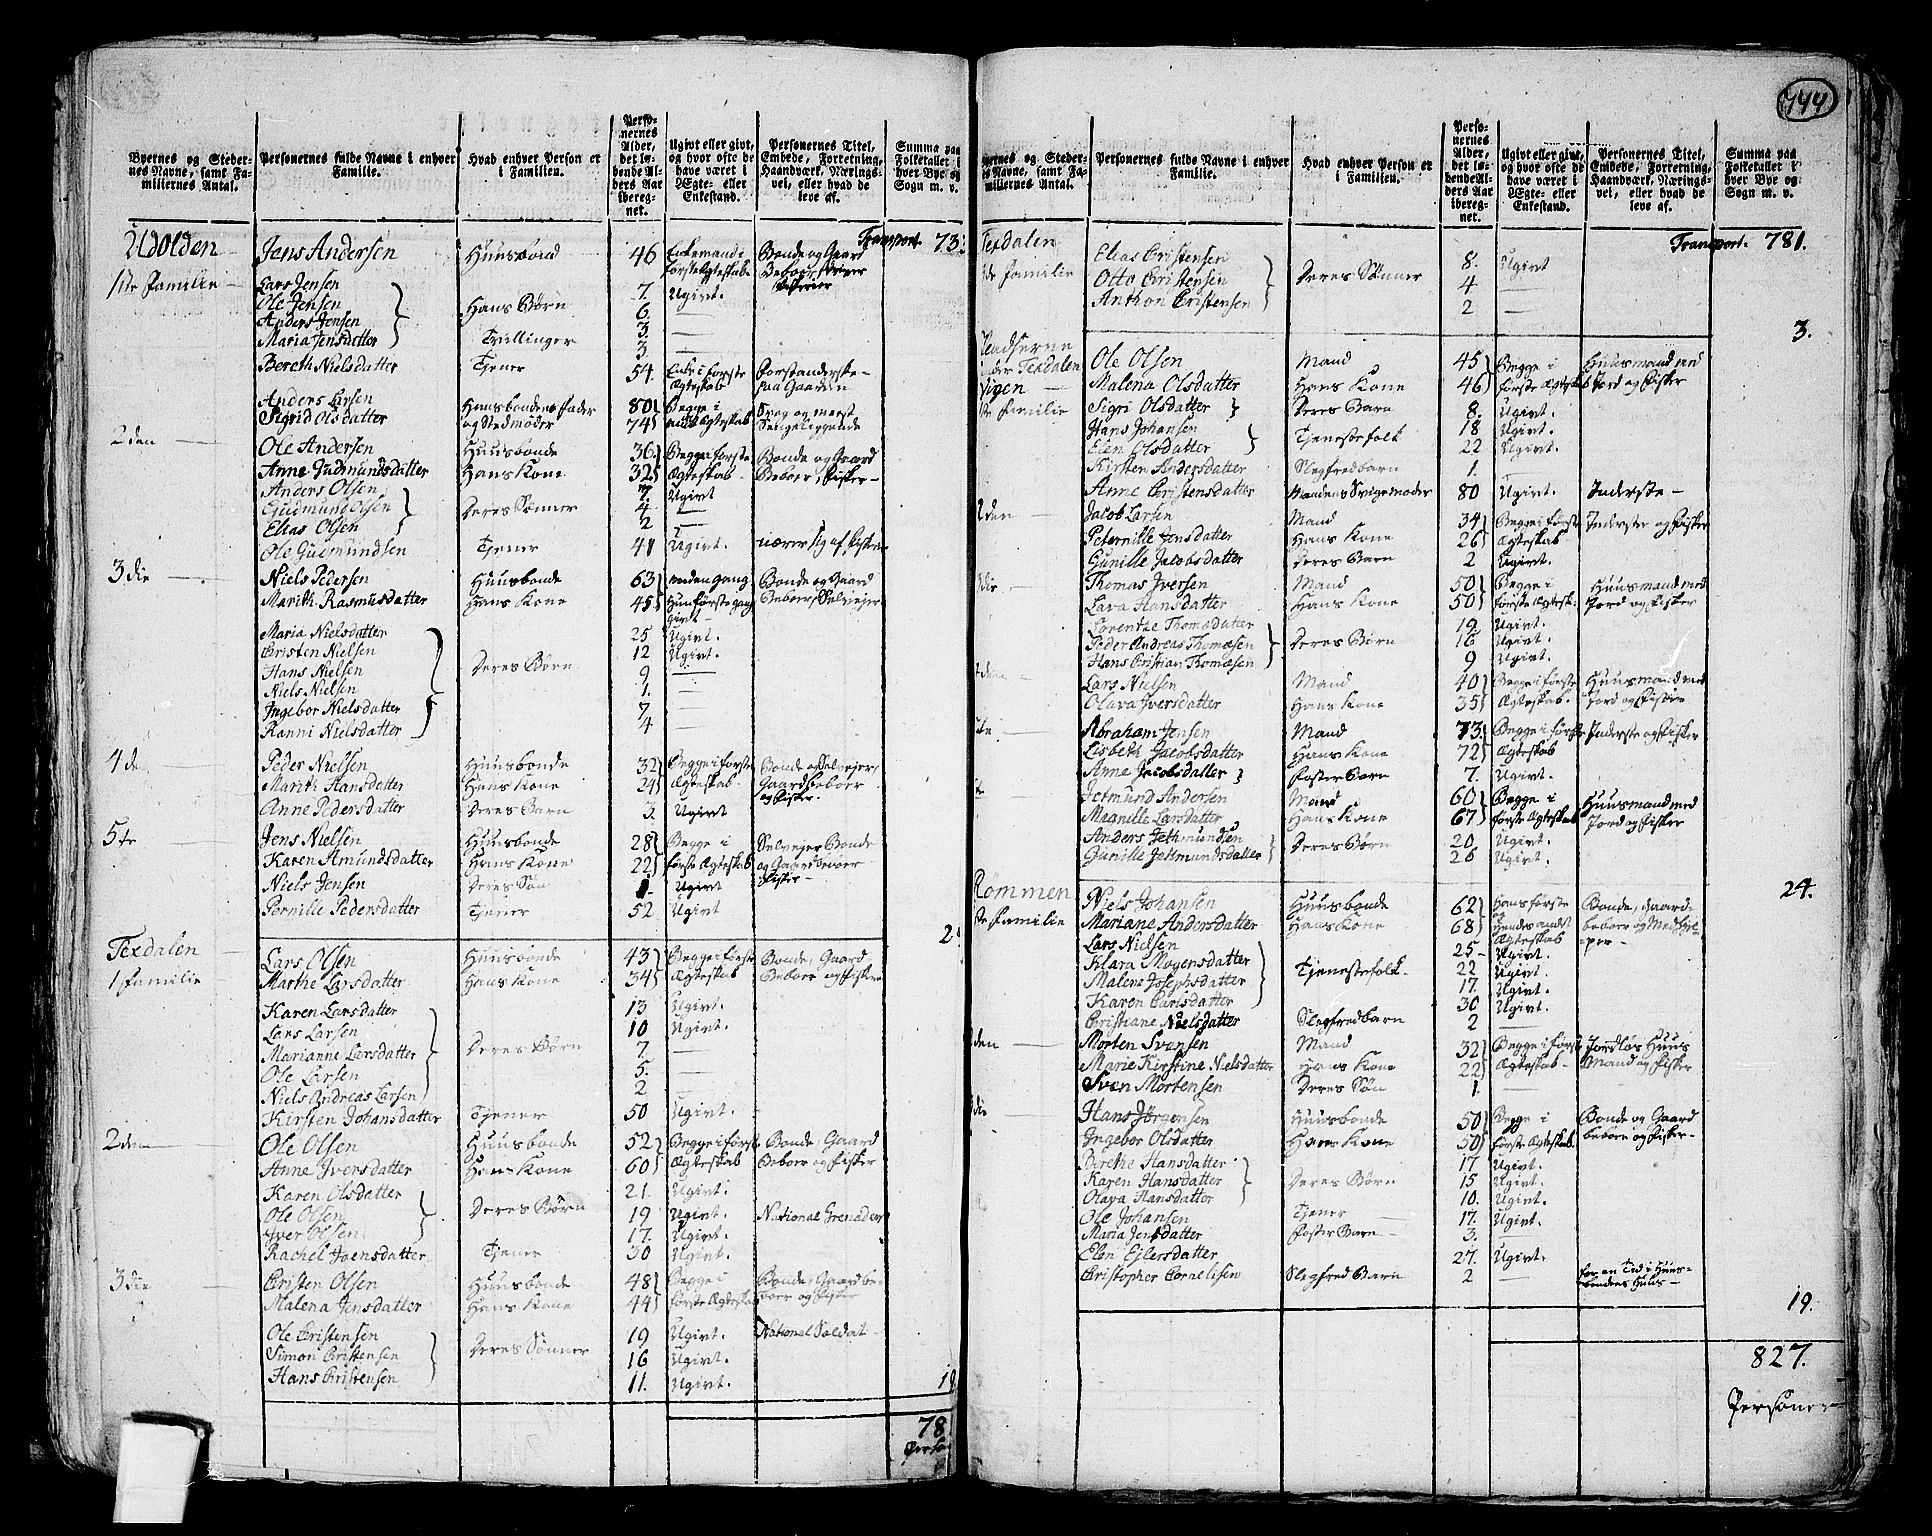 444
Byernes og Steder-
nes Navne, samt Fa-
miliernes Antal.
Personernes fulde Navne i enhver
Familie.
Hvad enhver Person er
i Familien.
Perso-
nernes
Alder,
det lø-
bende Al-
ders Aar
iberegnet.
Ugivt eller givt,
og hvor ofte de
have været i
Ægte- eller
Enkestand.
Personernes Titel,
Embede, Forretning,
Haandværk, Nærings-
vei, eller hvad de
leve af.
Summa paa
Folketallet i
hver Bye og
Sogn m. v.
Transport 73
Udolden Jens Andersen Huusbond 46 Enkemand i Bonde og Gaard
første Ægteskab Beboer
1ste Familie Lars Jensen 7. Ugivt.
Ole Jensen Hans Børn 6. —
Anders Jensen 3. —
Maria Jensdatter Trillinger 3 —
Bereth Nielsdatter Tjener 54. Enke i første Forstanderske
Ægteskab paa Gaarden
Anders Larsen Huusbondens Fader 80 Begge i Svag og meest
Sigrid Olsdatter og Stedmoder 74 Ægteskab Sengeliggende
2den Ole Andersen Huusbonde 36. Begge i første Bonde og Gaard
Anne Gudmundsdatter Hans Kone 32 Ægteskab Beboer, Fisker
Anders Olsen 7. Ugivt
Gudmund Olsen Deres Sønner 4. —
Elias Olsen 2 —
Ole Gudmundsen Tjener 41 Ugivt. nærer sig af Fiskerie
3die Niels Pedersen Huusbonde 63 anden gang Bonde og Gaard
Marith Rasmusdatter Hans Kone 45 Hun første gang Beboer, Selvejer
givt
Maria Nielsdatter 25 Ugivt.
Cristen Nielsen 12 Ugivt.
Hans Nielsen Deres Børn 9 —
Niels Nielsen 1. —
Ingebor Nielsdatter 7 —
Ranni Nielsdatter 4 —
4de Peder Nielsen Huusbonde 32 Begge i første Bonde og Selvejer,
Marith Hansdatter Hans Kone 24 Ægteskab. Gaardbeboer
Anne Pedersdatter Deres Barn 3. Ugivt og Fisker.
5te Jens Nielsen Huusbonde 28 Begge i Selvejer Bonde
Karen Amundsdatter Hans Kone 22 første Ægteskab og Gaardbeboer
Niels Jensen Deres Søn 1. Ugivt Fisker
Pernille Pedersdatter Tjener 52 Ugivt
Texdalen Lars Olsen Huusbonde 43 Begge i første Bonde, Gaard
1 Familie Marthe Larsdatter Hans Kone 34 Ægteskab Beboer og Fisker
Karen Larsdatter 13 Ugivt.
Lars Larsen 10 Ugivt.
Marianne Larsdatter Deres Børn 7. —
Ole Larsen 5. —
Niels Andreas Larsen 2 —
Kirsten Johansdatter Tjener 50 Ugivt.
2den Ole Olsen Huusbonde 52 Begge i første Bonde, Gaard
Anne Iversdatter Hans Kone 60 Ægteskab Beboer og Fisker
Karen Olsdatter 21. Ugivt.
Ole Olsen Deres Børn 19 Ugivt. National Grenader
Iver Olsen 17. Ugivt.
Rachel Joensdatter Tjener 30 Ugivt.
3die Cristen Olsen Huusbonde 48 Begge i Bonde, Gaardbe-
Malena Jensdatter Hans Kone 44 første Ægteskab boer og Fisker
Ole Cristensen 19 Ugivt. National Soldat
Simon Cristensen Deres Sønner 16 Ugivt.
Hans Cristensen 11. Ugivt.
78
Byernes og Steder-
nes Navne, samt Fa-
miliernes Antal.
Personernes fulde Navne i enhver
Familie.
Hvad enhver Person er
i Familien.
Perso-
nernes
Alder,
det lø-
bende Al-
ders Aar
iberegnet.
Ugivt eller givt,
og hvor ofte de
have været i
Ægte- eller
Enkestand.
Personernes Titel,
Embede, Forretning,
Haandværk, Nærings-
vei, eller hvad de
leve af.
Summa paa
Folketallet i
hver Bye og
Sogn m. v.
Transport. 781.
Texdalen Elias Cristensen 8. Ugivt
3die Familie Otto Cristensen Deres Sønner 4 —
Anthon Cristensen 2 —
3.
Pladserne Ole Olsen Mand 45 Begge i Huusmand med
under Texdalen Malena Olsdatter Hans Kone 46 første Ægteskab Jord og Fisker
Vigen
1ste Familie Sigri Olsdatter Deres Barn 8. Ugivt.
Hans Johansen Tjenestefolk 18 Ugivt.
Elen Olsdatter 22 Ugivt.
Kirsten Andersdatter Slegfredbarn 1. —
Anne Cristensdatter Mandens Svigemoder 80 Ugivt. Inderste
2den Jacob Larsen Mand 34 Begge i første Inderste og Fisker
Peternille Jensdatter Hans Kone 26 Ægteskab
Gunille Jacobsdatter Deres Barn 2 Ugivt.
3die Thomas Iversen Mand 50 Begge i Huusmand med
Lava Hansdatter Hans Kone 50 første Ægtesk. Jord og Fisker
Lorentze Thomædatter 19 Ugivt.
Peder Andreas Thomæsen Deres Børn 16 Ugivt.
Hans Cristian Thomæsen 9 Ugivt.
4den Lars Nielsen Mand 40 Begge i første Huusmand med
Olava Iversdatter Hans Kone 35 Ægteskab. Jord og Fisker
5te Abraham Jensen Mand 73 Begge i første Inderste og Fisker
Lisbeth Jacobsdatter Hans Kone 72 Ægteskab
Anne Jacobsdatter Foster Barn 7. Ugivt.
6te Jetmund Andersen Mand 60 Begge i Huusmand med
Meanille Larsdatter Hans Kone 67 første Ægteskab Jord og Fisker
Anders Jethmundsen Deres Børn 20. Ugivt.
Gunille Jethmundsdatter 26 Ugivt.
24.
Rømmen Niels Johansen Huusbonde 62 Hans første Bonde, Gaard-
1ste Familie Mariane Andersdatter Hans Kone 68 og Hendes andet beboer og Medhjel-
Ægteskab per
Lars Nielsen 25 Ugivt.
Klara Mogensdatter Tjenestefolk 22 Ugivt.
Malene Josephsdatter 17. Ugivt.
Karen Carlsdatter 30 Ugivt.
Cristiane Nielsdatter Slegfredbarn 2 —
2den Morten Svensen Mand 32 Begge i første Jordløs Huus
Marie Kirstine Nielsdatter Hans Kone 22 Ægteskab Mand og Fisker
Sven Mortensen Deres Søn 1. —
3die Hans Jørgensen Huusbonde 50 Begge i Bonde og Gaard
Ingebor Olsdatter Hans Kone 50 første Ægteskab. beboer og Fisker
Berethe Hansdatter 17 Ugivt.
Karen Hansdatter Deres Børn 15 Ugivt.
Olava Hansdatter 10. Ugivt.
Ole Johansen Tjener 17. Ugivt.
Maria Jensdatter Foster Barn 3. —
Elen Ejlersdatter 27. Ugivt.
Christopher Cornelisen Slegfred Barn 2 — for en Tid i Huus-
bondens Huus
19.
827.
Personer